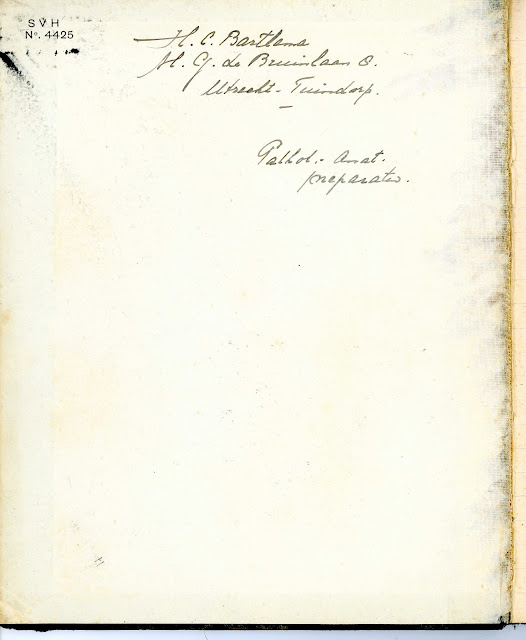 SVH
No. 4425
H. C. Bartlema
M. G. de Bruinlaan 8.
Utrecht - Tuindorp.
Pathol.- Anat.
preparaten.